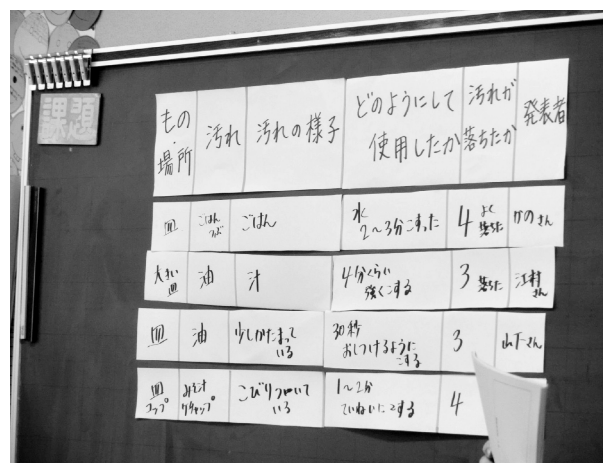 課題
もの・場所 汚れ 汚れの様子 どのようにして使用したか 汚れが落ちたか 発表者
皿 ごはん ごはん 水 2〜3分こすった 4 よく落ちた かのさん
大きい皿 油 汁 4分くらい強くこする 3 落ちた 江村さん
皿 油 少しかたまっている 30秒おしつけるようにこする 3 山下さん
皿 コップ みそ汁 ケチャップ こびりついている 1〜2分ていねいにこする 4